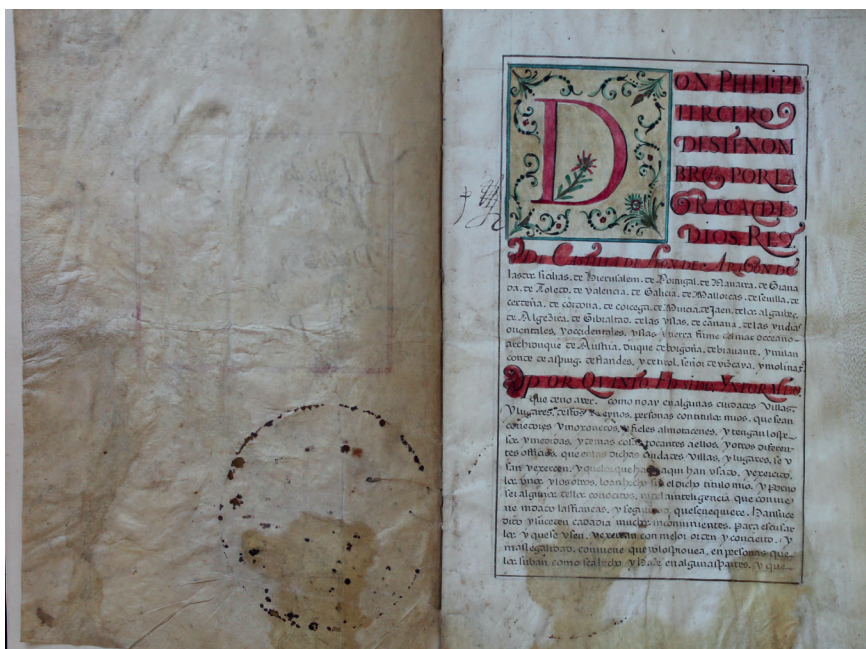 DON PHELIPE
TERCERO
DESTENOM
BRE, POR LA
GRACIA DE
DIOS REY.
DE CASTILLA DE LEON DE ARAGON DE
las dos sicilias. de Hierusalem. de Portugal. de Nauarra. de Grana
da. de Toledo. de Valencia. de Galicia. de Mallorcas. de seuilla. de
cerdeña. de cordoua. de corcega. de Murcia. de Jaen. de los algarbes.
de Algezira. de Gibraltar. de las yslas. de canaria. de las yndias
orientales, y occidentales, yslas, y tierra firme del mar occeano
archiduque de Austria. duque de borgoña, de brauante, y milan
conde de aspurg. de flandes, y de tirol. señor de vizcaya, y molina
POR QUANTO HE SIDO YNFORMADO
Que deuo auer. como no ay en algunas ciudades Villas,
Y lugares, destos Reynos, personas con titulos mios, que sean
corredores y moxoneros, fieles almotacenes, y tengan los pe
sos y medidas, y demas cosas tocantes a ellos, y otros diferen
tes officios, que en las dichas ciudades Villas, y lugares, se v
san y exercen, y que los que hasta aqui han vsado, y exercido,
los vnos y los otros, lo an hecho sin el dicho titulo mio, y por no
ser algunos dellos conocidos, ni de la inteligencia que conuie
ne no dado las fianças, y seguridad, que se requiere. Han suce
dido y suceden cada dia muchos inconuinientes. para escusar
los y que se vsen, y exerzan con mejor orden y concierto, y
mas legalidad, conuiene que yo los prouea, en personas que
los siruan, como se a hecho y haze en algunas partes, y que